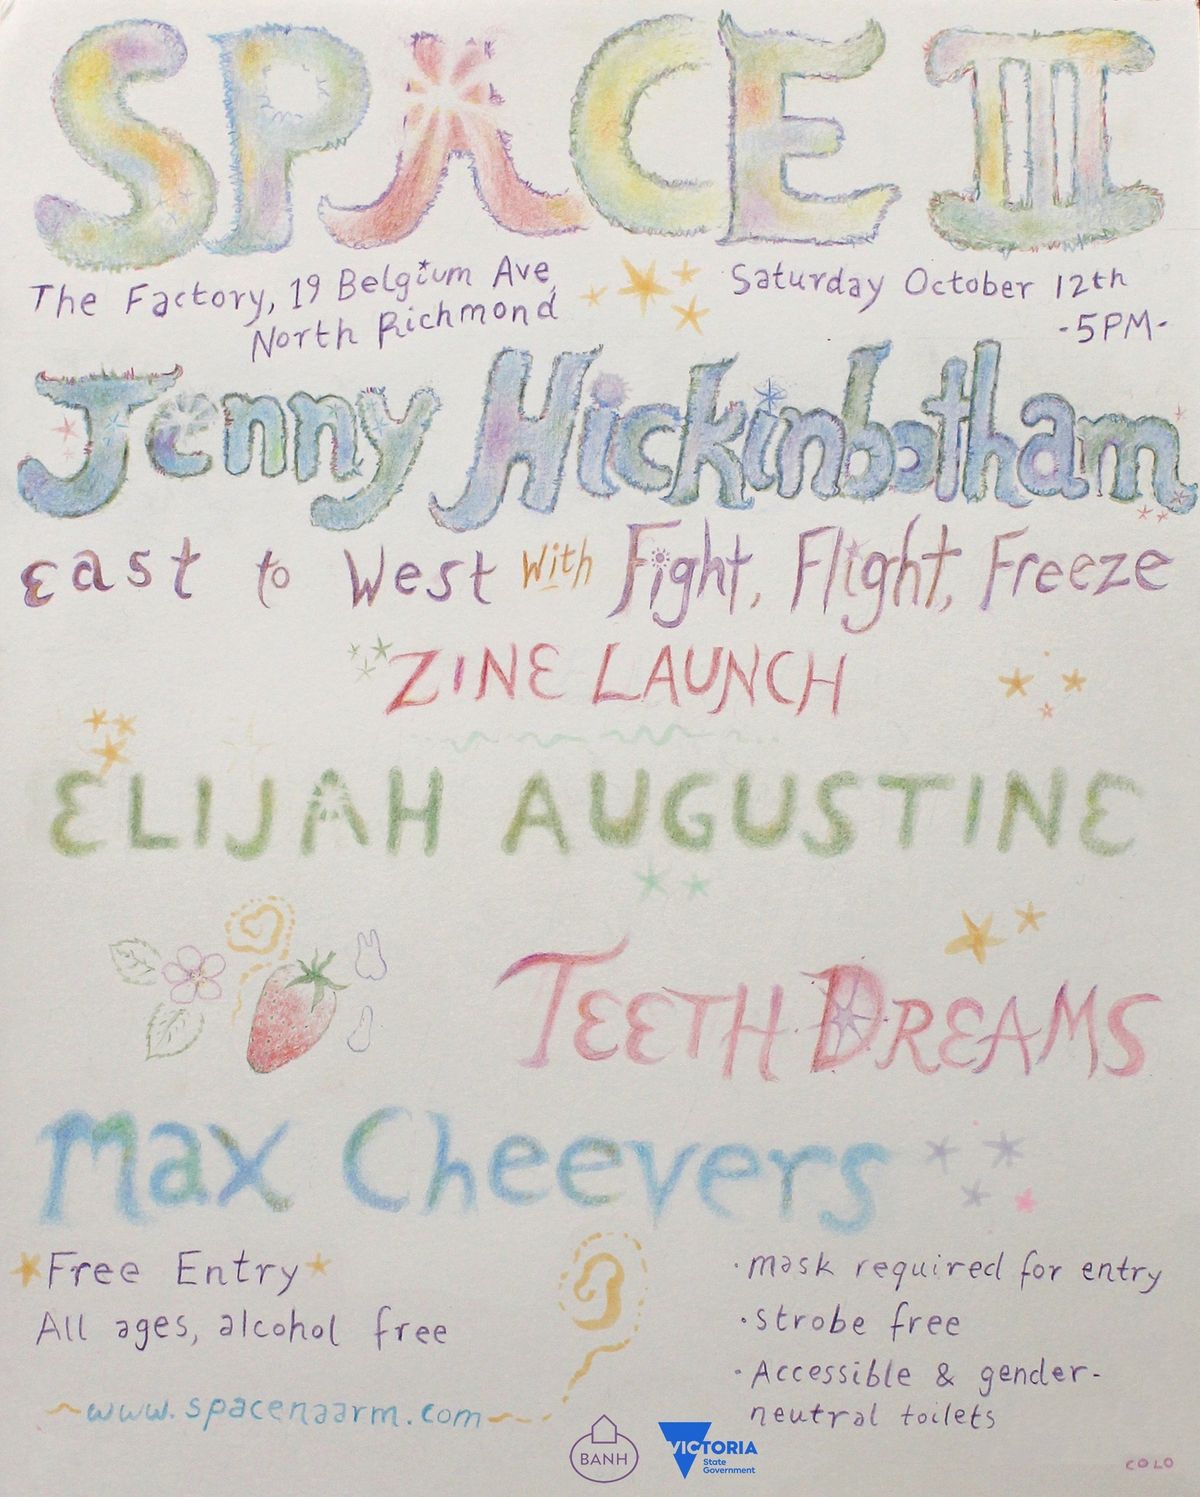 SPACE III
The Factory, 19 Belgium Ave,
North Richmond
Saturday October 12th
-5PM-
Jenny Hickinbotham
East to West with Fight, Flight, Freeze
ZINE LAUNCH
ELIJAH AUGUSTINE
TEETH DREAMS
Max Cheevers
Free Entry
All ages, alcohol free
www.spacenaarm.com
· mask required for entry
· strobe free
· Accessible & gender-
neutral toilets
BANH
VICTORIA
State
Government
COLO